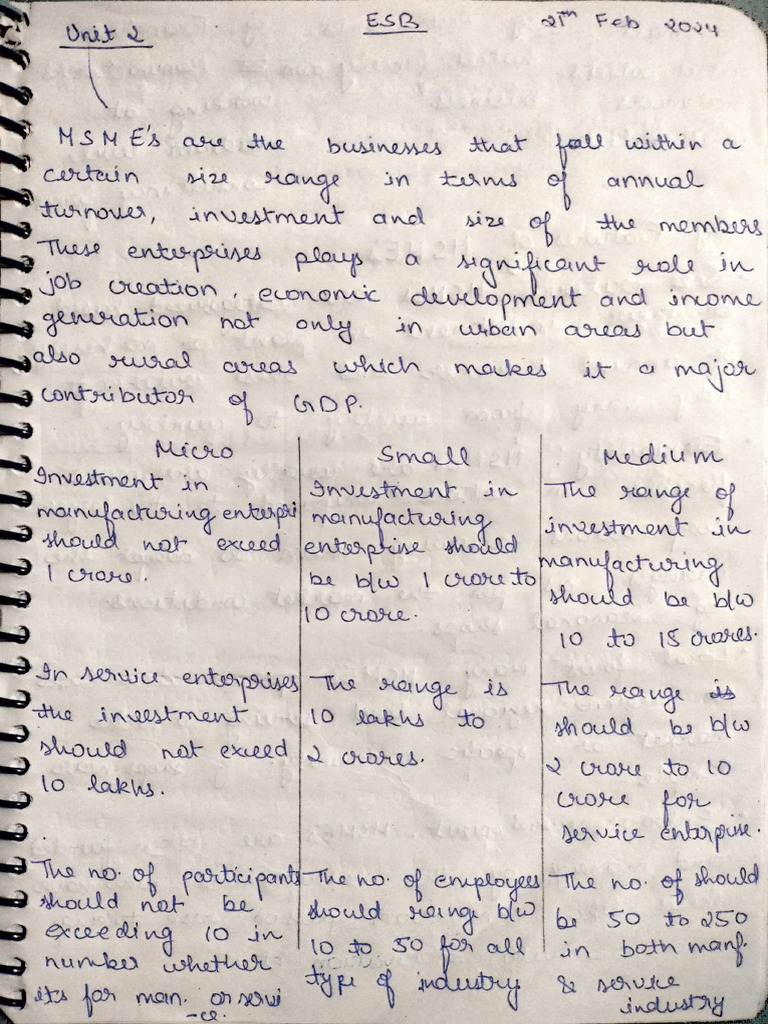 Unit 2
ESB
21th Feb 2024
MSME's are the businesses that fall within a
certain size range in terms of annual
turnover, investment and size of the members
These enterprises plays a significant role in
job creation, economic development and income
generation not only in urban areas but
also rural areas which makes it a major
contributor of GDP.
Micro
Investment in
manufacturing enterpri
should not exceed
1 crore.
In service enterprises
the investment
should not exceed
10 lakhs.
The no. of participants
should not be
exceeding 10 in
number whether
its for man. or servi
-ce.
Small
Investment in
manufacturing
enterprise should
be b/w 1 crore to
10 crore.
The range is
10 lakhs to
2 crores.
The no. of employees
should range b/w
10 to 50 for all
type of industry
Medium
The range of
investment in
manufacturing
should be b/w
10 to 15 crores.
The range is
should be b/w
2 crore to 10
crore for
service enterprise.
The no. of should
be 50 to 250
in both manf.
& service
industry